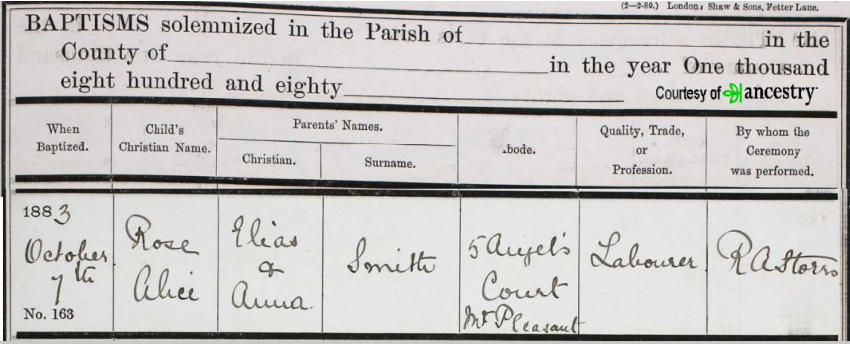 (2—2-80.) London: Shaw & Sons, Fetter Lane.
BAPTISMS solemnized in the Parish of in the
County of in the year One thousand
eight hundred and eighty
Courtesy of ancestry
When Baptized.
Child's Christian Name.
Parents' Names.
Christian.
Surname.
bode.
Quality, Trade, or Profession.
By whom the Ceremony was performed.
1883
October
7th
No. 163
Rose
Alice
Elias
&
Anna
Smith
5 Angel's
Court
Mt Pleasant
Labourer
R A Storrs